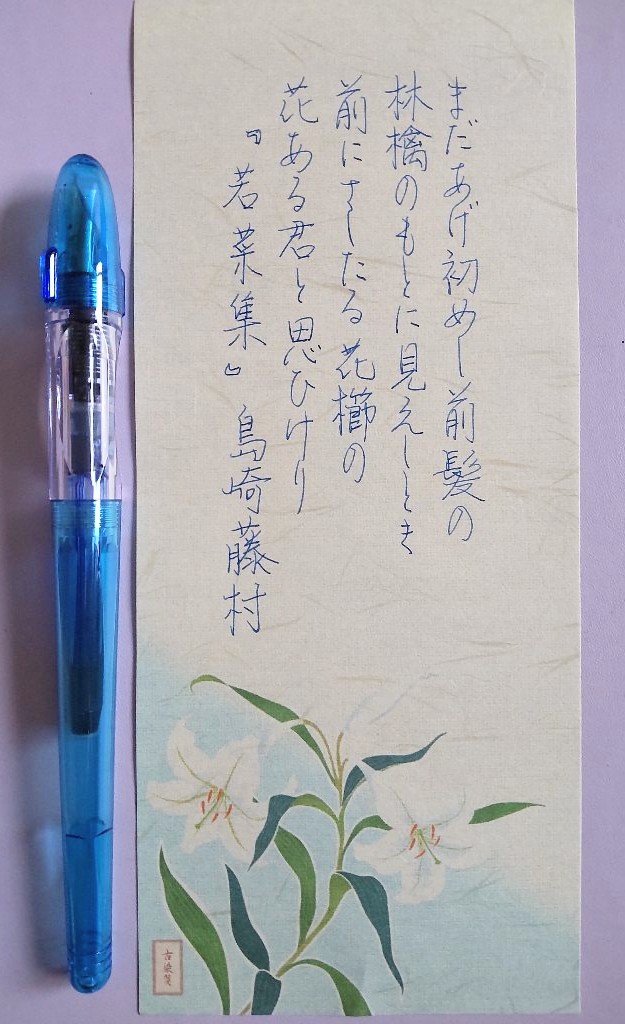 まだあげ初めし前髪の
林檎のもとに見えしとき
前にさしたる花櫛の
花ある君と思ひけり
『若菜集』 島崎藤村